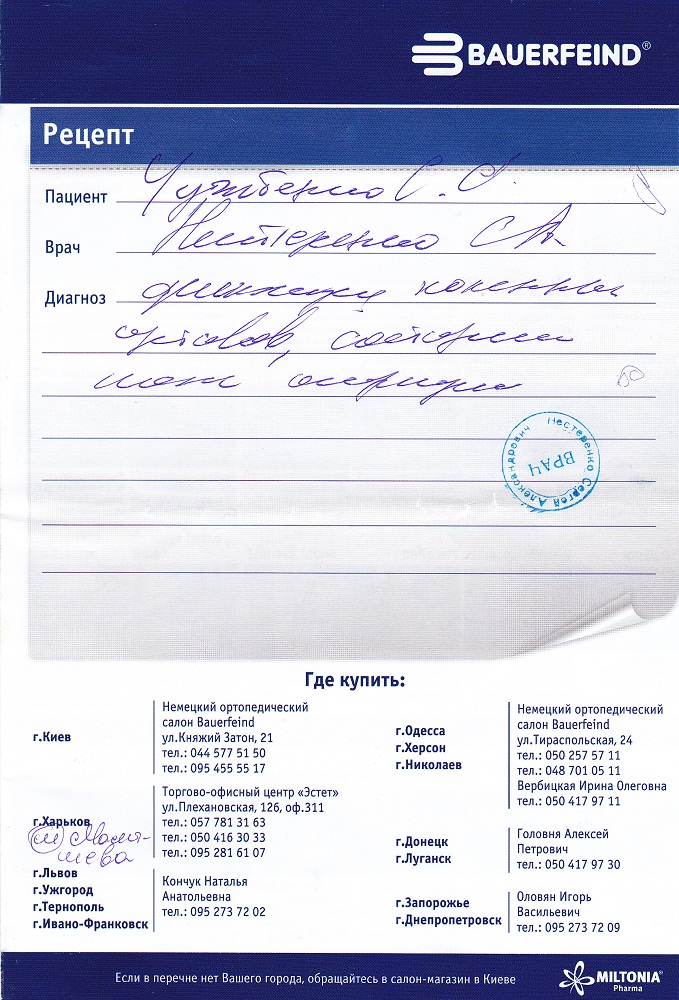 BAUERFEIND®
Рецепт
Пациент С. С.
Врач Нестеренко СА.
Диагноз
ВРАЧ
Нестеренко Сергей Александрович
Где купить:
г.Киев
Немецкий ортопедический
салон Bauerfeind
ул.Княжий Затон, 21
тел.: 044 577 51 50
тел.: 095 455 55 17
г.Харьков
Торгово-офисный центр «Эстет»
ул.Плехановская, 126, оф.311
тел.: 057 781 31 63
тел.: 050 416 30 33
тел.: 095 281 61 07
г.Львов
г.Ужгород
г.Тернополь
г.Ивано-Франковск
Кончук Наталья
Анатольевна
тел.: 095 273 72 02
г.Одесса
г.Херсон
г.Николаев
Немецкий ортопедический
салон Bauerfeind
ул.Тираспольская, 24
тел.: 050 257 57 11
тел.: 048 701 05 11
Вербицкая Ирина Олеговна
тел.: 050 417 97 11
г.Донецк
г.Луганск
Головня Алексей
Петрович
тел.: 050 417 97 30
г.Запорожье
г.Днепропетровск
Оловян Игорь
Васильевич
тел.: 095 273 72 09
Если в перечне нет Вашего города, обращайтесь в салон-магазин в Киеве
MILTONIA®
Pharma